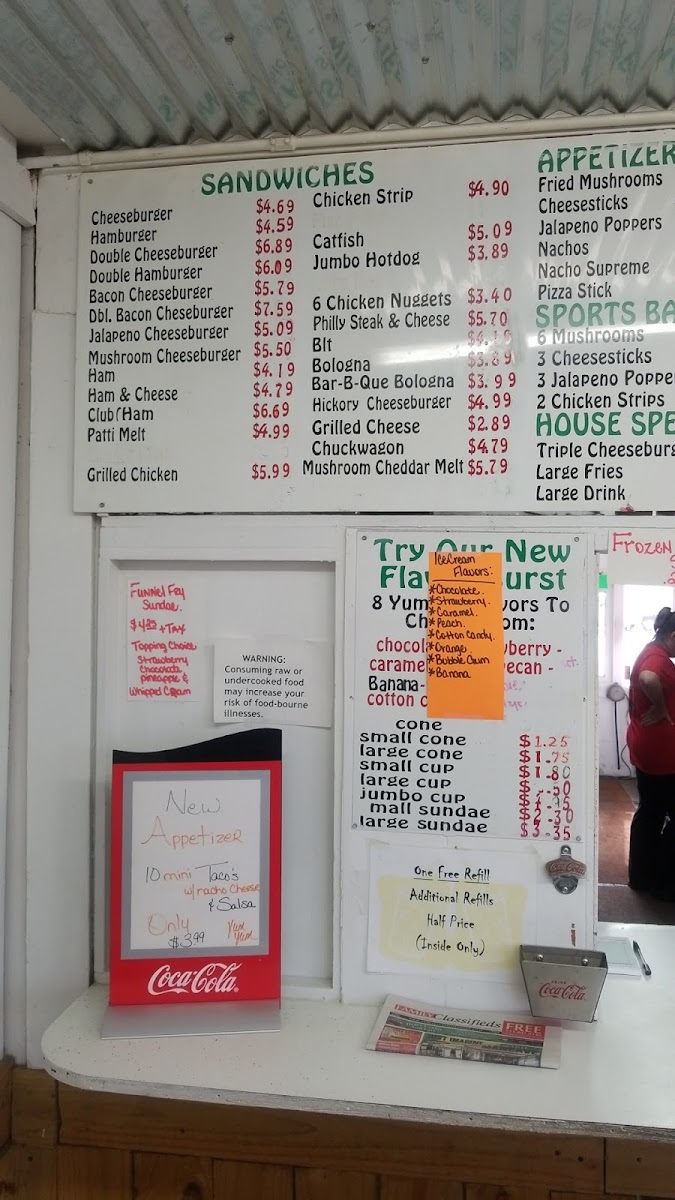 SANDWICHES
Cheeseburger $4.69
Hamburger $4.59
Double Cheeseburger $6.89
Double Hamburger $6.09
Bacon Cheeseburger $5.79
Dbl. Bacon Cheseburger $7.59
Jalapeno Cheeseburger $5.09
Mushroom Cheeseburger $5.50
Ham $4.19
Ham & Cheese $4.79
Club/Ham $6.69
Patti Melt $4.99
Grilled Chicken $5.99
Chicken Strip $4.90
Catfish $5.09
Jumbo Hotdog $3.89
6 Chicken Nuggets $3.40
Philly Steak & Cheese $5.70
Blt
Bologna $3.89
Bar-B-Que Bologna $3.99
Hickory Cheeseburger $4.99
Grilled Cheese $2.89
Chuckwagon $4.79
Mushroom Cheddar Melt $5.79
APPETIZER
Fried Mushrooms
Cheesesticks
Jalapeno Poppers
Nachos
Nacho Supreme
Pizza Stick
SPORTS BA
6 Mushrooms
3 Cheesesticks
3 Jalapeno Poppe
2 Chicken Strips
HOUSE SPE
Triple Cheeseburg
Large Fries
Large Drink
Funnel Fry
Sundae.
+ Tax
Topping Choice
Strawberry
Chocolate
pineapple &
Whipped Cream
WARNING:
Consuming raw or
undercooked food
may increase your
risk of food-bourne
illnesses.
New
Appetizer
10 mini Taco's
w/ nacho Cheese
& Salsa
Only
$3.99
Yum
Yum
Coca-Cola
Try Our New
Fla urst
8 Yum vors To
Ch om:
chocol wberry -
carame ecan -
Banana-
cotton c
IceCream
Flavors:
*Chocolate.
*Strawberry.
*Caramel.
*Peach.
*Cotton Candy.
*Orange.
*Bubble Gum
*Banana
cone
small cone $1.25
large cone $1.75
small cup $1.80
large cup
jumbo cup
mall sundae
large sundae $3.35
Frozen
One Free Refill
Additional Refills
Half Price
(Inside Only)
Coca-Cola
DRINK
Coca-Cola
FAMILY Classifieds FREE